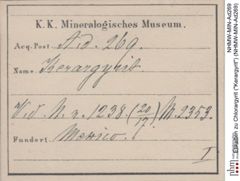 K. K. Mineralogisches Museum.
Acq.-Post. A.d. 269.
Name: Kerargyrit
V.d. N. v. 1238. (20/17.) M. 2353.
Fundort. Mexico.
I
NHMW-MIN-Ad269
Etiketten zu Chlorargyrit ("Kerargyrit") (NHMW-MIN-Ad269)
nhm